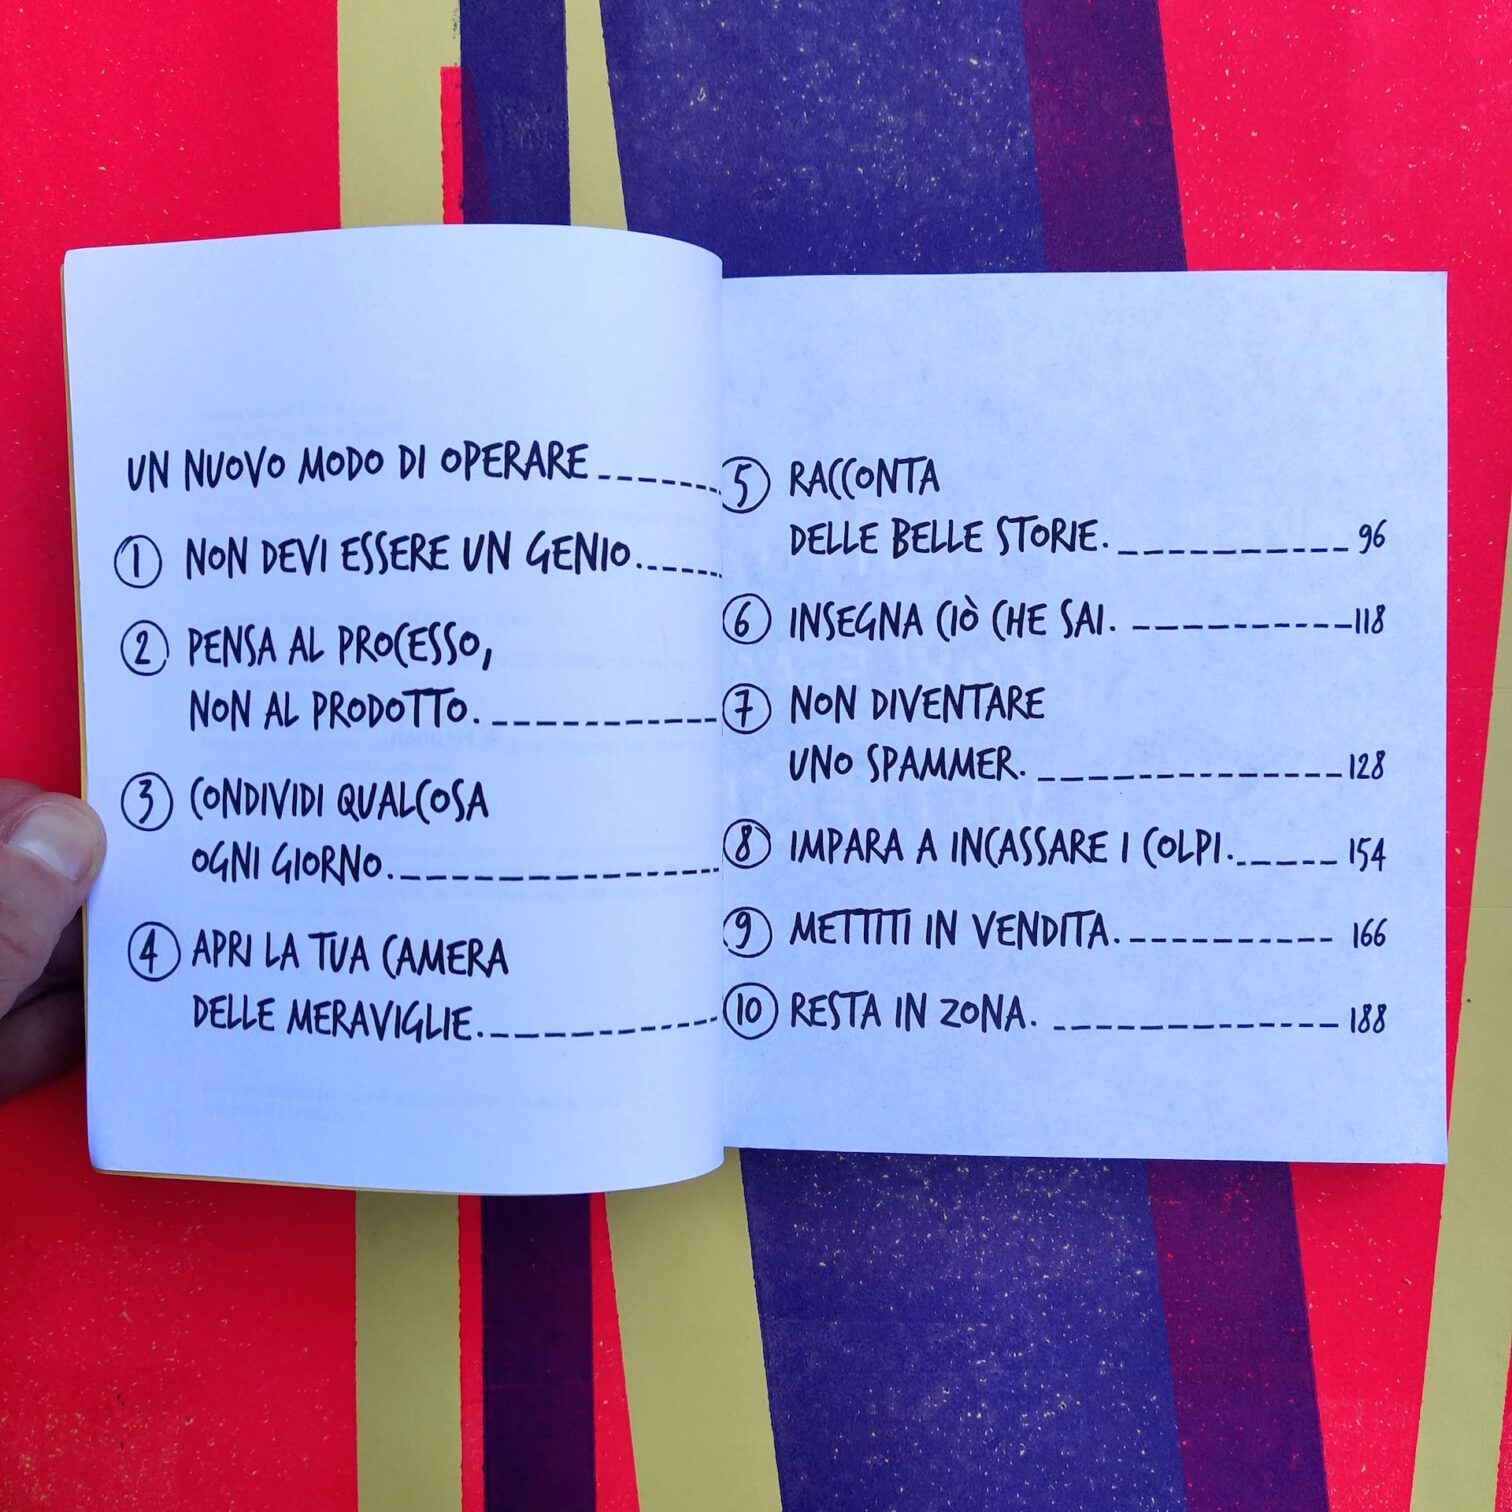 UN NUOVO MODO DI OPERARE
1 NON DEVI ESSERE UN GENIO.
2 PENSA AL PROCESSO,
NON AL PRODOTTO.
3 CONDIVIDI QUALCOSA
OGNI GIORNO.
4 APRI LA TUA CAMERA
DELLE MERAVIGLIE.
5 RACCONTA
DELLE BELLE STORIE. 96
6 INSEGNA CIÒ CHE SAI. 118
7 NON DIVENTARE
UNO SPAMMER. 128
8 IMPARA A INCASSARE I COLPI. 154
9 METTITI IN VENDITA. 166
10 RESTA IN ZONA. 188